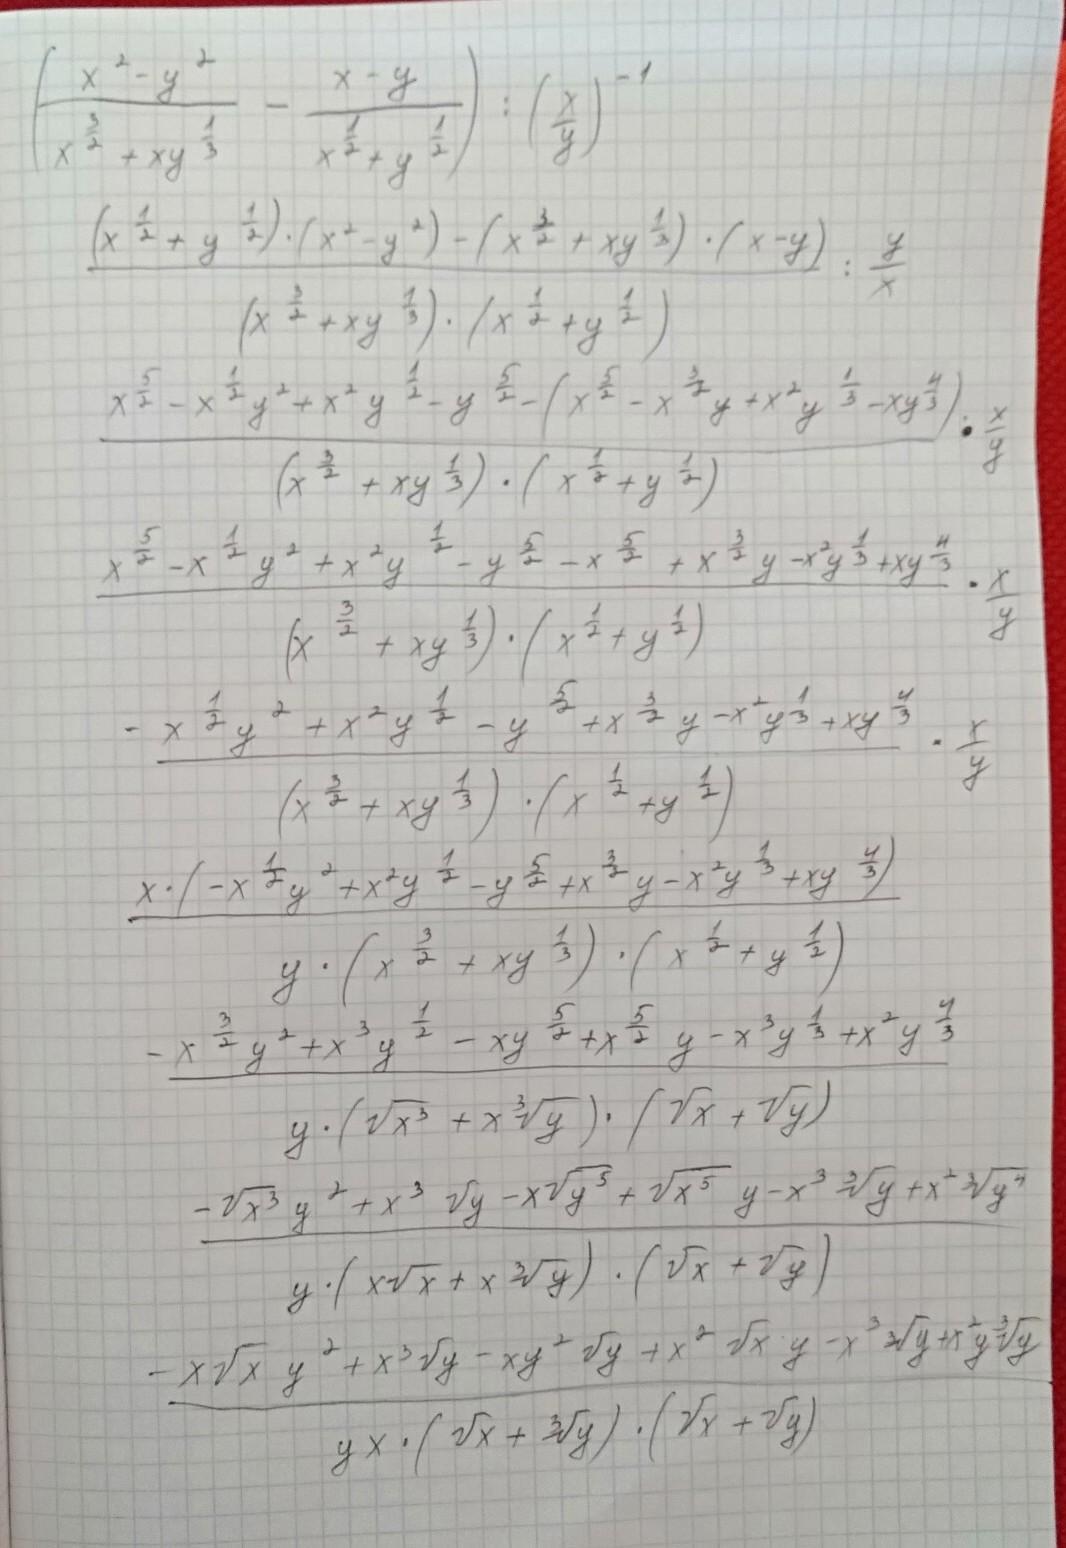 (\frac{x^2-y^2}{x^{\frac{3}{2}}+xy^{\frac{1}{3}}} - \frac{x-y}{x^{\frac{1}{2}}+y^{\frac{1}{2}}}) : (\frac{x}{y})^{-1}
\frac{(x^{\frac{1}{2}}+y^{\frac{1}{2}})·(x^2-y^2)-(x^{\frac{3}{2}}+xy^{\frac{1}{3}})·(x-y)}{(x^{\frac{3}{2}}+xy^{\frac{1}{3}})·(x^{\frac{1}{2}}+y^{\frac{1}{2}})} : \frac{y}{x}
\frac{x^{\frac{5}{2}}-x^{\frac{1}{2}}y^2+x^2y^{\frac{1}{2}}-y^{\frac{5}{2}}-(x^{\frac{5}{2}}-x^{\frac{3}{2}}y+x^2y^{\frac{1}{3}}-xy^{\frac{4}{3}})}{(x^{\frac{3}{2}}+xy^{\frac{1}{3}})·(x^{\frac{1}{2}}+y^{\frac{1}{2}})} · \frac{x}{y}
\frac{x^{\frac{5}{2}}-x^{\frac{1}{2}}y^2+x^2y^{\frac{1}{2}}-y^{\frac{5}{2}}-x^{\frac{5}{2}}+x^{\frac{3}{2}}y-x^2y^{\frac{1}{3}}+xy^{\frac{4}{3}}}{(x^{\frac{3}{2}}+xy^{\frac{1}{3}})·(x^{\frac{1}{2}}+y^{\frac{1}{2}})} · \frac{x}{y}
\frac{-x^{\frac{1}{2}}y^2+x^2y^{\frac{1}{2}}-y^{\frac{5}{2}}+x^{\frac{3}{2}}y-x^2y^{\frac{1}{3}}+xy^{\frac{4}{3}}}{(x^{\frac{3}{2}}+xy^{\frac{1}{3}})·(x^{\frac{1}{2}}+y^{\frac{1}{2}})} · \frac{x}{y}
\frac{x·(-x^{\frac{1}{2}}y^2+x^2y^{\frac{1}{2}}-y^{\frac{5}{2}}+x^{\frac{3}{2}}y-x^2y^{\frac{1}{3}}+xy^{\frac{4}{3}})}{y·(x^{\frac{3}{2}}+xy^{\frac{1}{3}})·(x^{\frac{1}{2}}+y^{\frac{1}{2}})}
\frac{-x^{\frac{3}{2}}y^2+x^3y^{\frac{1}{2}}-xy^{\frac{5}{2}}+x^{\frac{5}{2}}y-x^3y^{\frac{1}{3}}+x^2y^{\frac{4}{3}}}{y·(\sqrt{x^3}+x\sqrt[3]{y})·(\sqrt{x}+\sqrt{y})}
\frac{-\sqrt{x^3}y^2+x^3\sqrt{y}-x\sqrt{y^5}+\sqrt{x^5}y-x^3\sqrt[3]{y}+x^2\sqrt[3]{y^4}}{y·(x\sqrt{x}+x\sqrt[3]{y})·(\sqrt{x}+\sqrt{y})}
\frac{-x\sqrt{x}y^2+x^3\sqrt{y}-xy^2\sqrt{y}+x^2\sqrt{x}y-x^3\sqrt[3]{y}+x^2y\sqrt[3]{y}}{yx·(\sqrt{x}+\sqrt[3]{y})·(\sqrt{x}+\sqrt{y})}